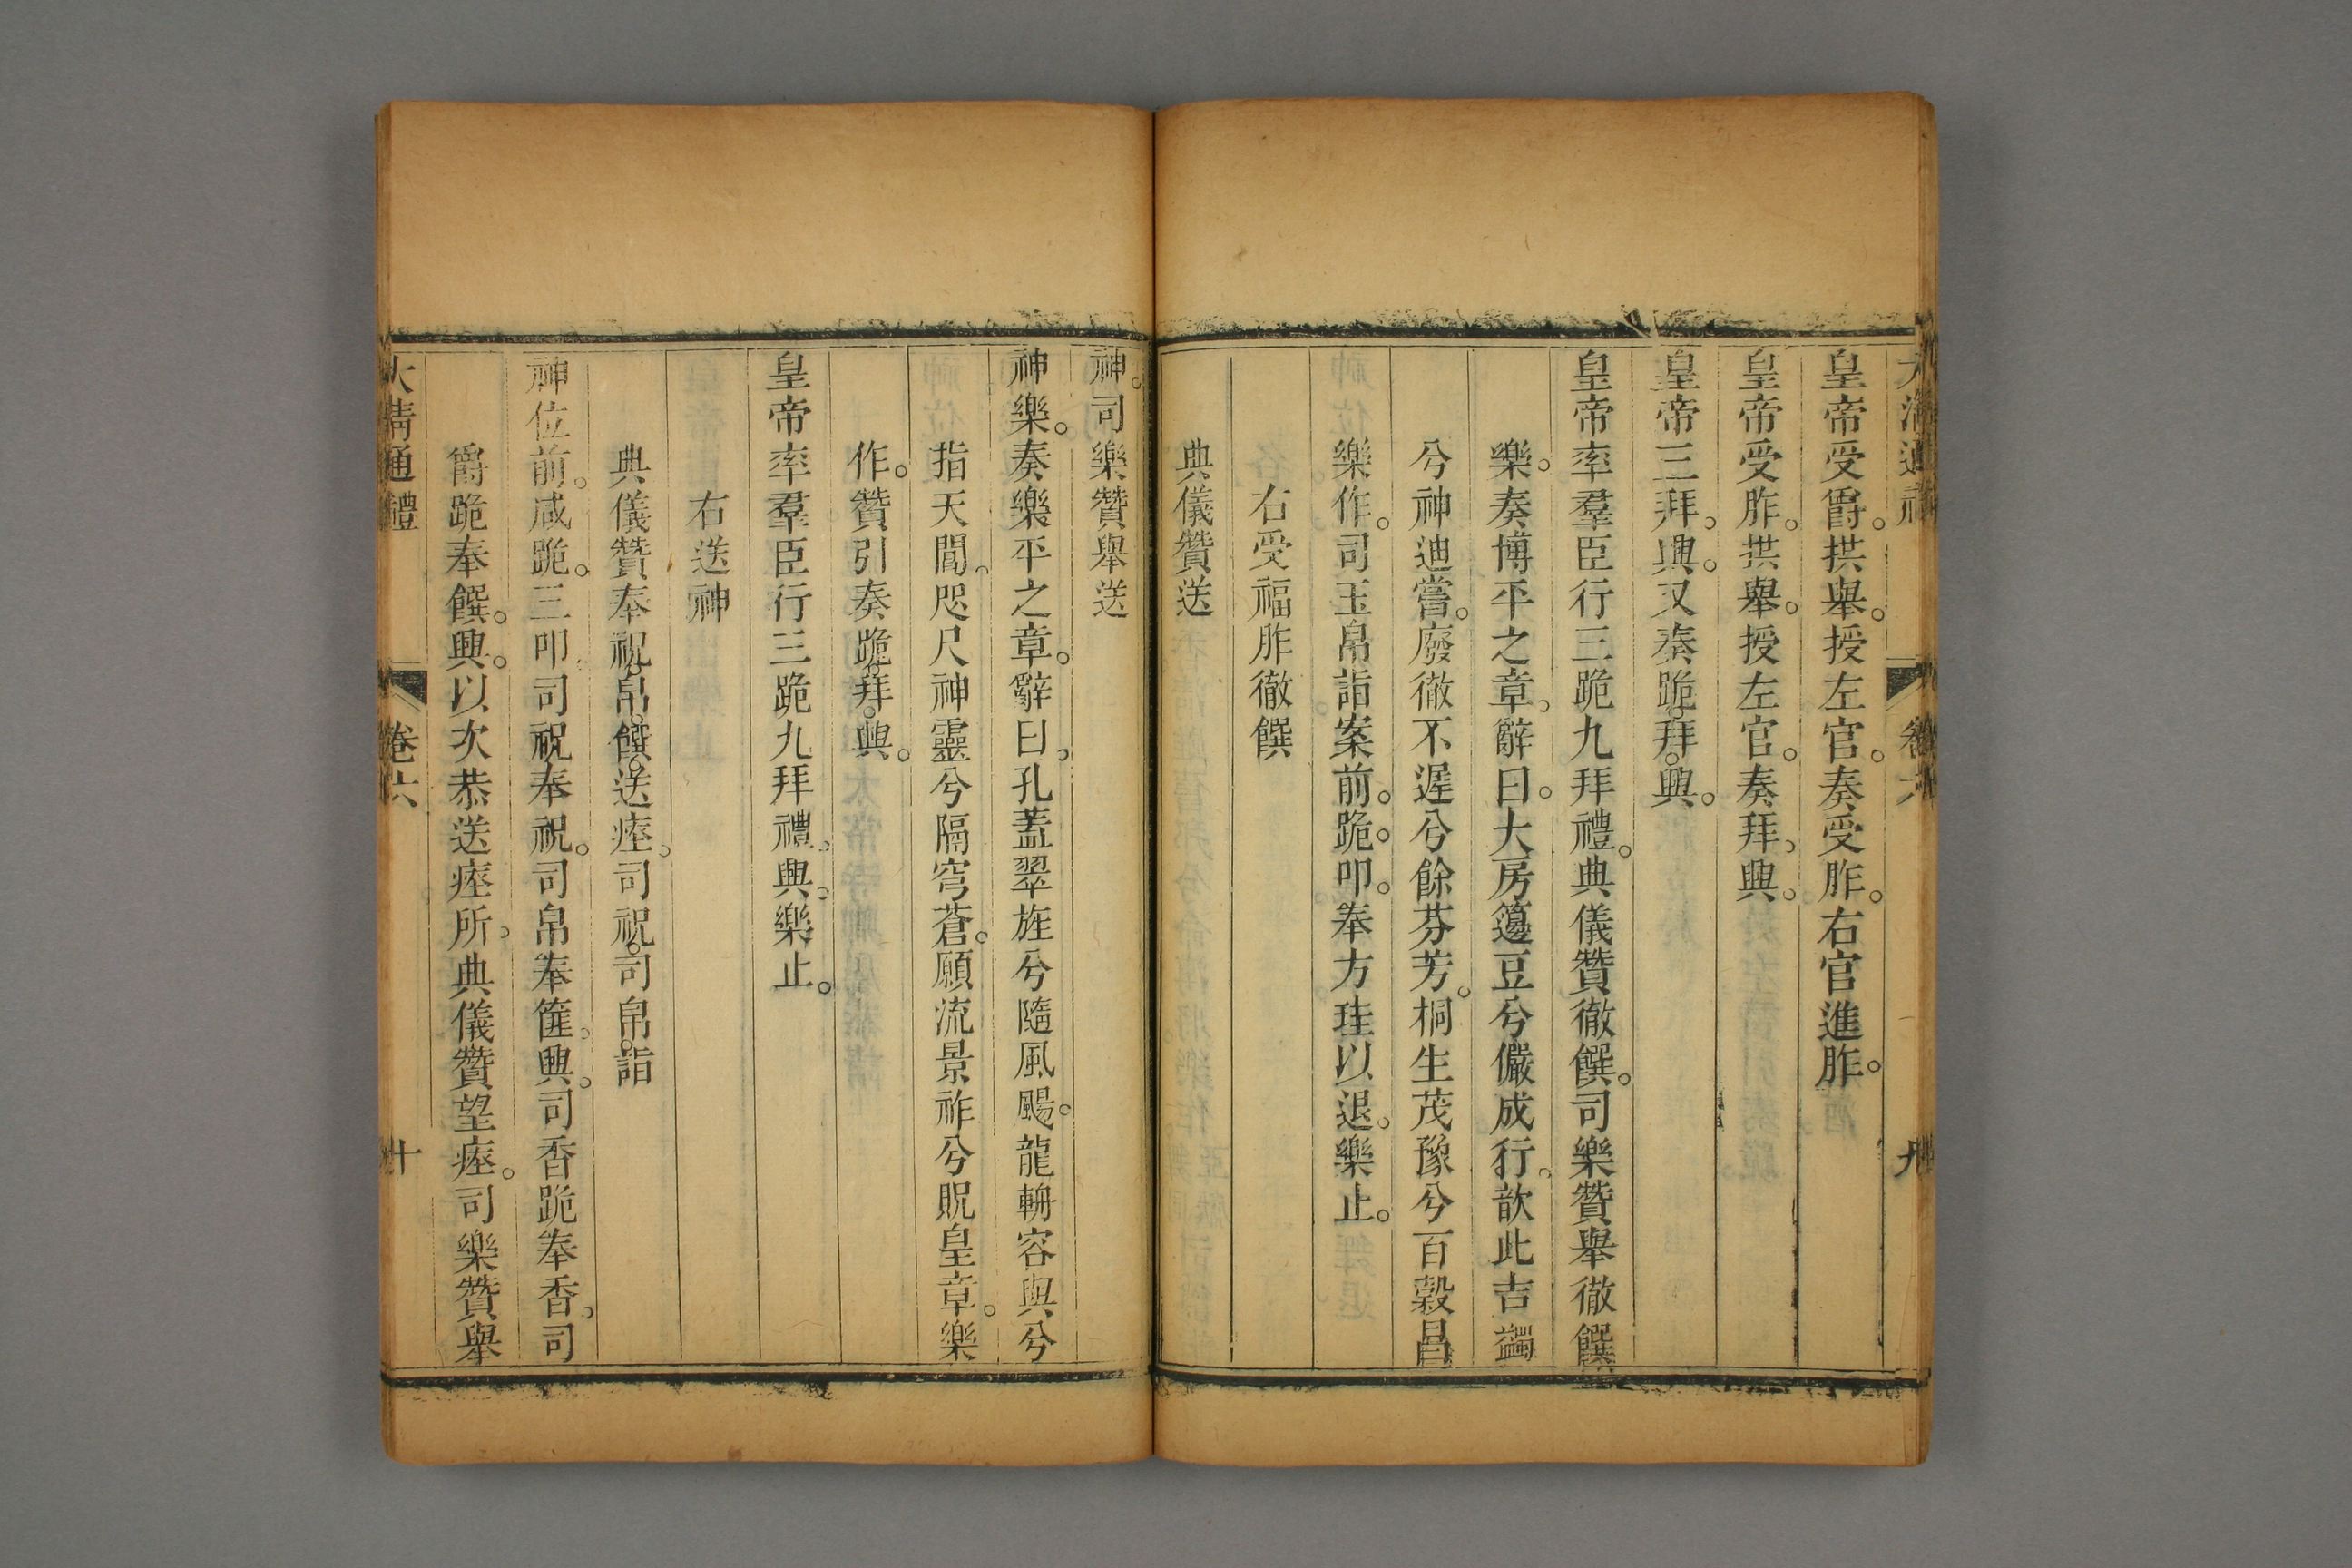 大清通禮 卷六 九
皇帝受爵。拱舉。授左官。奏受胙。右官進胙。
皇帝受胙。拱舉。授左官。奏拜。興。
皇帝三拜。興。又奏跪。拜。興。
皇帝率羣臣行三跪九拜禮。典儀贊徹饌。司樂贊舉徹饌
樂。奏博平之章。辭曰。大房籩豆兮儼成行。歆此吉蠲
兮神迪嘗。廢徹不遲兮餘芬芳。桐生茂豫兮百穀昌
樂作。司玉帛詣案前。跪。叩。奉方珪以退。樂止。
右受福胙徹饌
典儀贊送
神。司樂贊舉送
神樂。奏樂平之章。辭曰。孔蓋翠旌兮隨風颺。龍輈容與兮
指天閶。咫尺神靈兮隔穹蒼。願流景祚兮貺皇章。樂
作。贊引奏跪。拜。興。
皇帝率羣臣行三跪九拜禮。興。樂止。
右送神
典儀贊奉祝。帛。饌。送瘞。司祝。司帛。詣
神位前。咸跪。三叩。司祝奉祝。司帛奉篚。興。司香跪奉香。司
爵跪奉饌。興。以次恭送瘞所。典儀贊望瘞。司樂贊舉
大清通禮 卷六 十